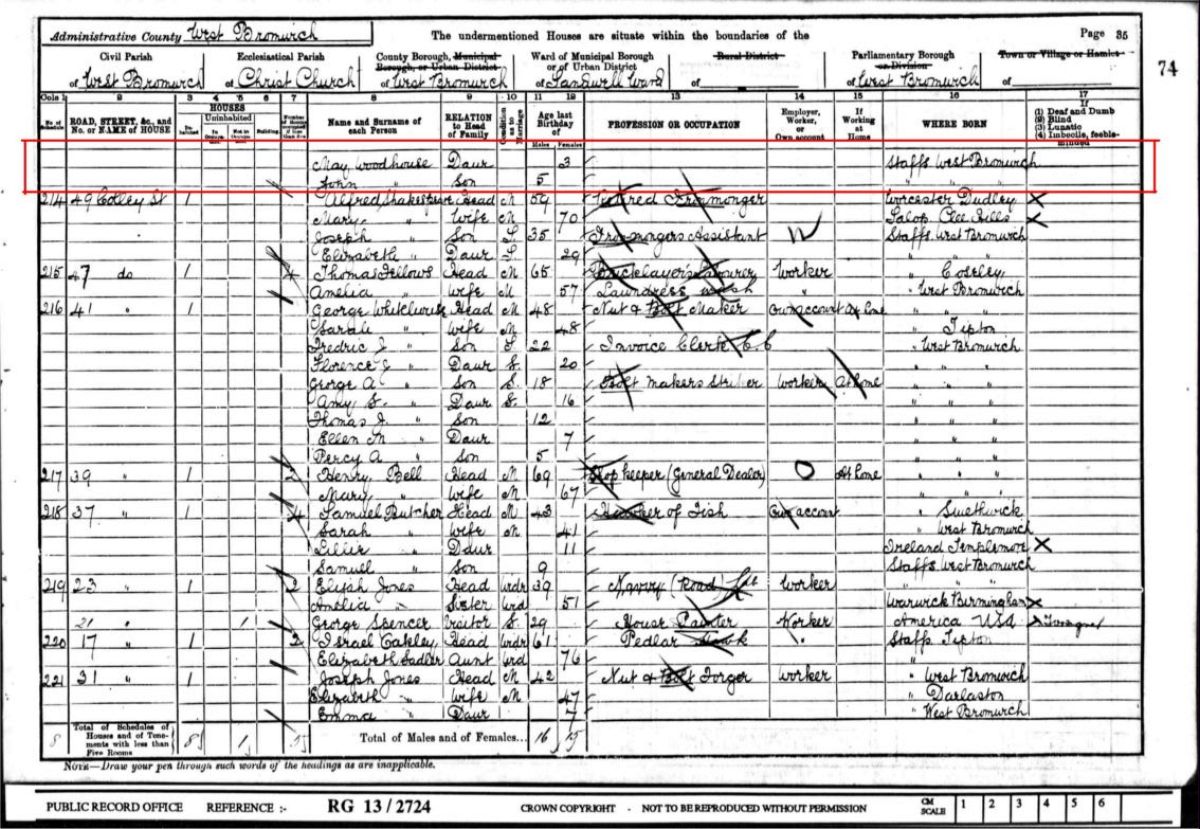 Administrative County West Bromwich The undermentioned Houses are situate within the boundaries of the Page 35
74
Civil Parish Ecclesiastical Parish County Borough, Municipal Borough, or Urban District Ward of Municipal Borough or of Urban District Rural District Parliamentary Borough or Division Town or Village or Hamlet
of West Bromwich of Christ Church of West Bromwich of Sandwell Ward of of West Bromwich of
Cols 1 2 3 4 5 6 7 8 9 10 11 12 13 14 15 16 17
No. of Schedule ROAD, STREET, &c., and No. or NAME of HOUSE HOUSES Inhabited Uninhabited In Occupation Not in Occupation Building Number of Rooms occupied if less than five Name and Surname of each Person RELATION to Head of Family Condition as to Marriage Age last Birthday of Males Females PROFESSION OR OCCUPATION Employer, Worker, or Own account If Working at Home WHERE BORN If (1) Deaf and Dumb (2) Blind (3) Lunatic (4) Imbecile, feeble-minded
May Woodhouse Daur 3 Staffs West Bromwich
John " Son 5 " " "
214 49 Cotley St 1 Alfred Shakespeare Head M 59 Retired Ironmonger Worcester Dudley
Mary " Wife M 70 Salop Clee Hills
Joseph " Son S 35 Ironmongers Assistant W Staffs West Bromwich
Elizabeth " Daur S 29 " " "
215 47 do 1 4 Thomas Fellows Head M 65 Bricklayer's Labourer Worker " Coseley
Amelia " Wife M 57 Laundress wash " West Bromwich
216 41 " 1 George Whitehouse Head M 48 Nut & Bolt Maker Own account At home " "
Sarah " Wife M 48 " Tipton
Fredric J " Son S 22 Invoice Clerk " West Bromwich
Florence J " Daur S 20 " " "
George A " Son S 18 Bolt makers Striker Worker At home " " "
Amy S. " Daur S 16 " " "
Thomas J. " Son 12 " " "
Ellen M " Daur 7 " " "
Percy A " Son 5 " " "
217 39 " 1 2 Henry Bell Head M 69 Shop keeper (General Dealer) O At home " " "
Mary " Wife M 67 " " "
218 37 " 1 4 Samuel Butcher Head M 43 Hawker of Fish Own account " Smethwick
Sarah " Wife M 41 " West Bromwich
Lillie " Daur 11 Ireland Templemore
Samuel " Son 9 Staffs West Bromwich
219 23 " 1 2 Elijah Jones Head Wdr 39 Navvy (Road) Worker " " "
Amelia " Sister Wd 51 Warwick Birmingham
21 " 1 George Spencer Visitor S 29 House Painter Worker America USA
220 17 " 1 2 Israel Oakley Head Wdr 61 Pedlar Hawk " Staffs Tipton
Elizabeth Sadler Aunt Wd 76 "
221 31 " 1 Joseph Jones Head M 42 Nut & Bolt Forger Worker " West Bromwich
Elizabeth " Wife M 47 " Darlaston
Emma " Daur 7 " West Bromwich
8 Total of Schedules of Houses and of Tenements with less than Five Rooms 8 1 5 Total of Males and of Females... 16 15
NOTE—Draw your pen through such words of the headings as are inapplicable.
PUBLIC RECORD OFFICE REFERENCE :- RG 13/2724 CROWN COPYRIGHT - NOT TO BE REPRODUCED WITHOUT PERMISSION CM SCALE 1 2 3 4 5 6